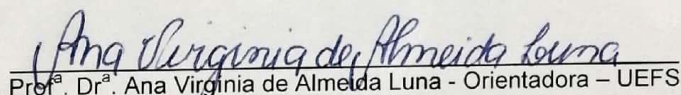 Ana Virginia de Almeida Luna
Profª. Drª. Ana Virgínia de Almeida Luna - Orientadora – UEFS